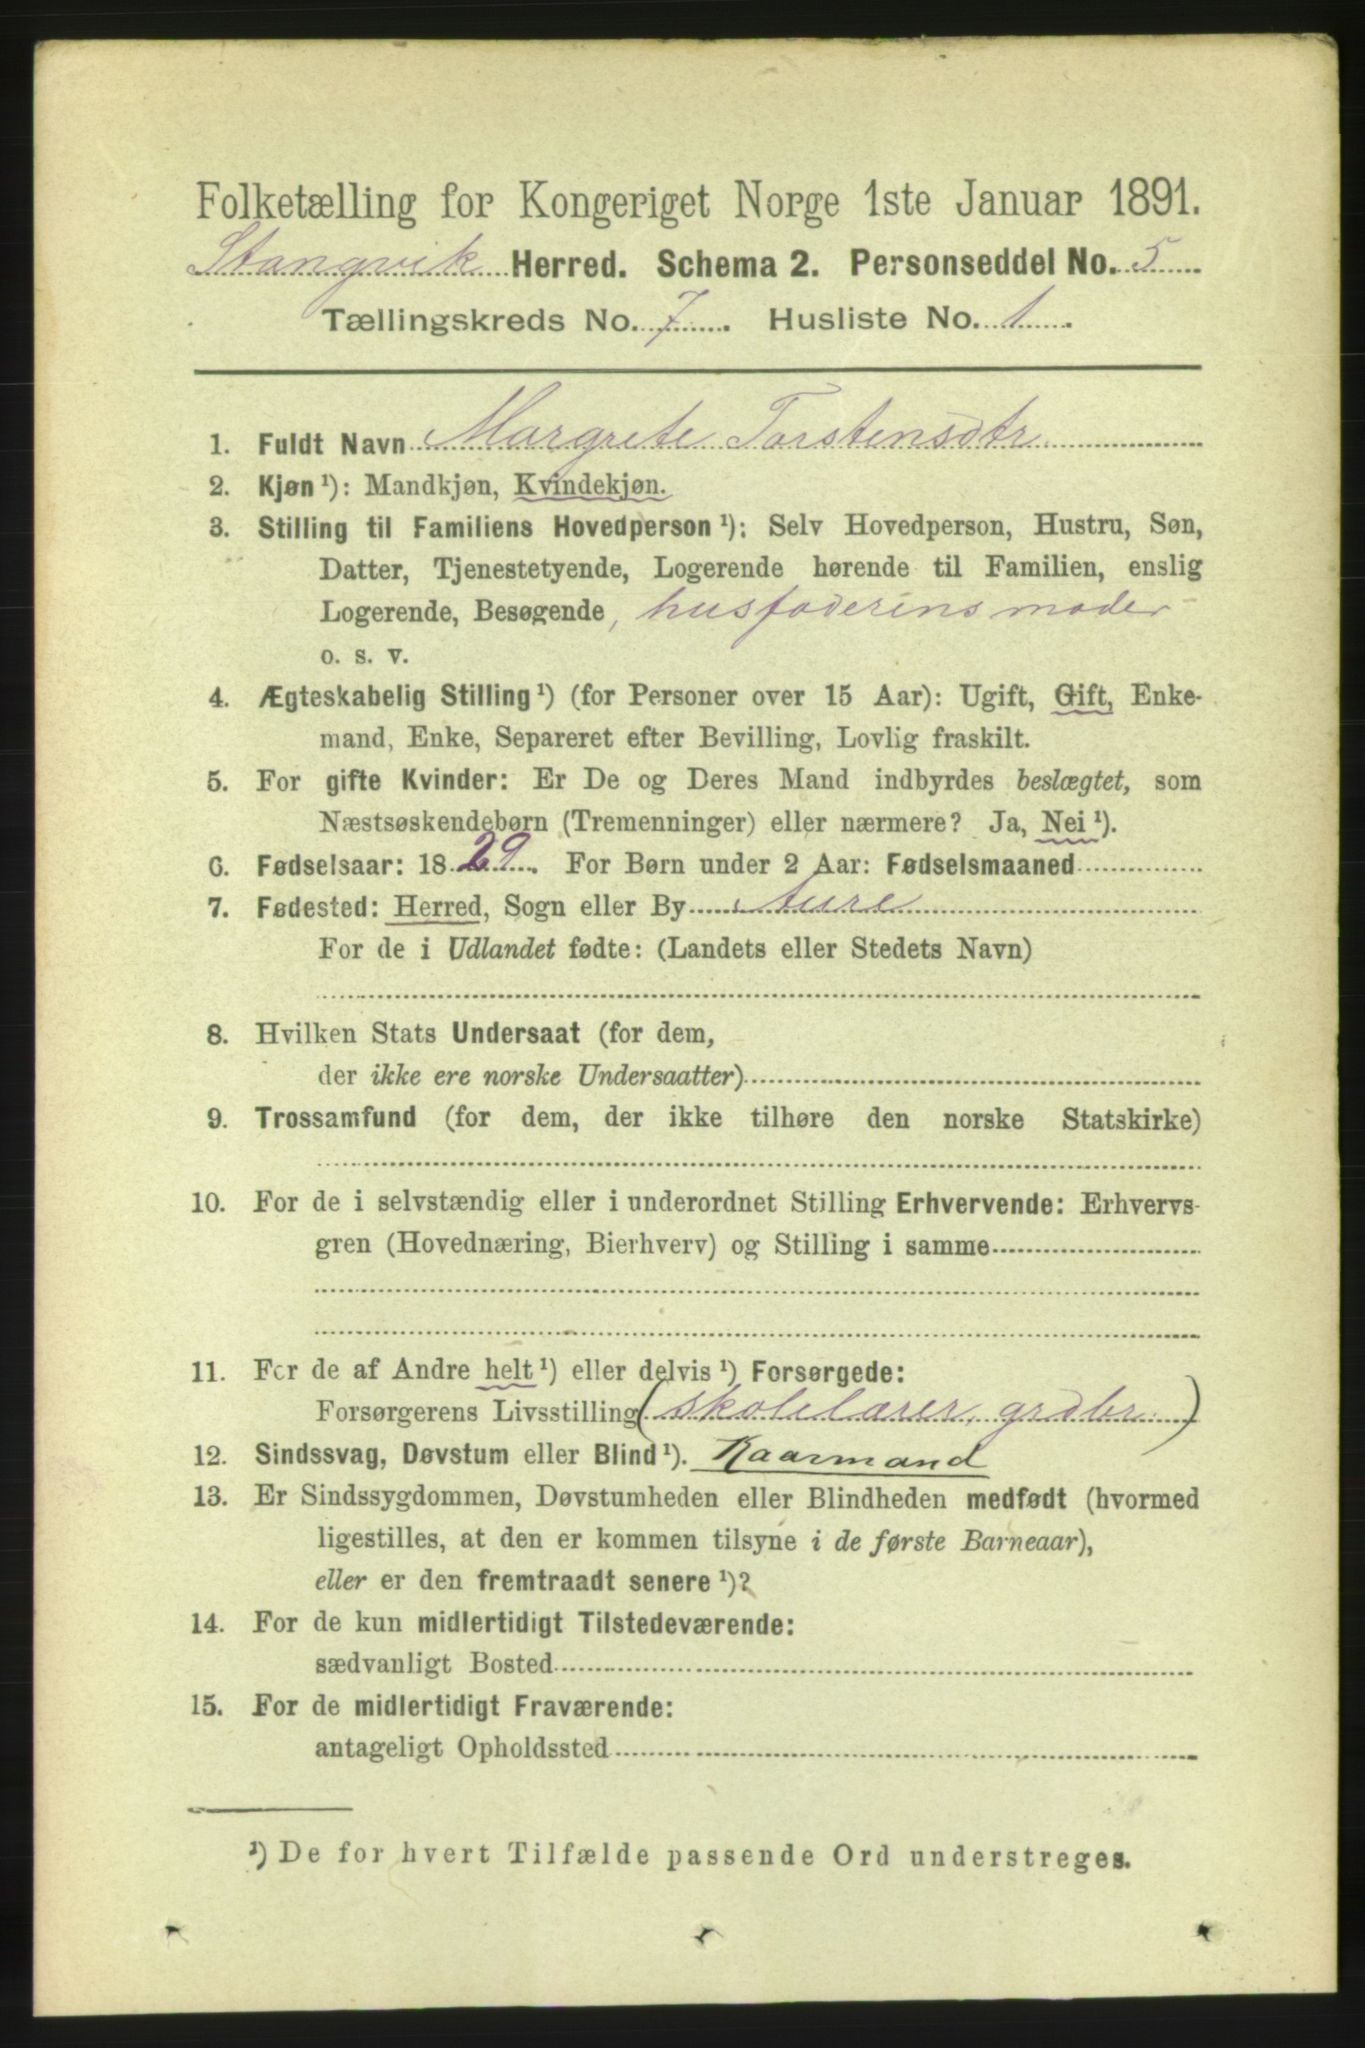 Folketælling for Kongeriget Norge 1ste Januar 1891.
Stangvik Herred. Schema 2. Personseddel No. 5
Tællingskreds No. 7. Husliste No. 1.
1. Fuldt Navn Margrete Torstensdtr
2. Kjøn ¹): Mandkjøn, Kvindekjøn.
3. Stilling til Familiens Hovedperson ¹): Selv Hovedperson, Hustru, Søn,
Datter, Tjenestetyende, Logerende hørende til Familien, enslig
Logerende, Besøgende, husfaderens moder
o. s. v.
4. Ægteskabelig Stilling ¹) (for Personer over 15 Aar): Ugift, Gift, Enke-
mand, Enke, Separeret efter Bevilling, Lovlig fraskilt.
5. For gifte Kvinder: Er De og Deres Mand indbyrdes beslægtet, som
Næstsøskendebørn (Tremenninger) eller nærmere? Ja, Nei ¹).
6. Fødselsaar: 1829. For Børn under 2 Aar: Fødselsmaaned
7. Fødested: Herred, Sogn eller By Aure
For de i Udlandet fødte: (Landets eller Stedets Navn)
8. Hvilken Stats Undersaat (for dem,
der ikke ere norske Undersaatter)
9. Trossamfund (for dem, der ikke tilhøre den norske Statskirke)
10. For de i selvstændig eller i underordnet Stilling Erhvervende: Erhvervs-
gren (Hovednæring, Bierhverv) og Stilling i samme
11. For de af Andre helt ¹) eller delvis ¹) Forsørgede:
Forsørgerens Livsstilling (skolelærer, grdbr.)
12. Sindssvag, Døvstum eller Blind ¹). Kaarmand
13. Er Sindssygdommen, Døvstumheden eller Blindheden medfødt (hvormed
ligestilles, at den er kommen tilsyne i de første Barneaar),
eller er den fremtraadt senere ¹)?
14. For de kun midlertidigt Tilstedeværende:
sædvanligt Bosted
15. For de midlertidigt Fraværende:
antageligt Opholdssted
¹) De for hvert Tilfælde passende Ord understreges.